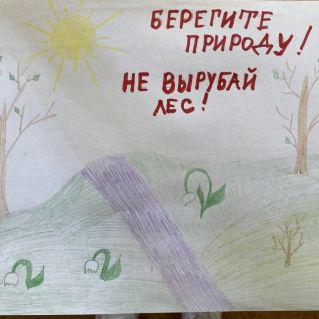 БЕРЕГИТЕ
ПРИРОДУ!
НЕ ВЫРУБАЙ
ЛЕС!